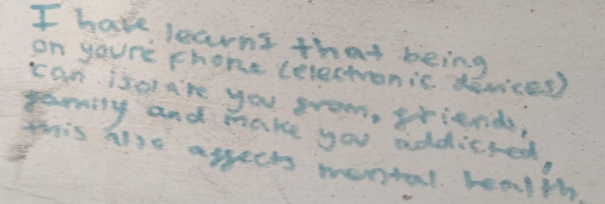 I have learnt that being
on youre Phone (electronic devices)
can isolate you from, friends,
family and make you addicted,
this also affects mental health.